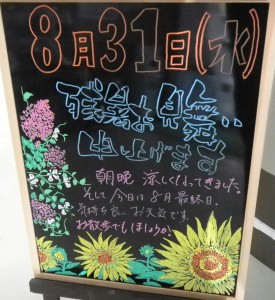 8月31日(水)
残暑お見舞い
申し上げます
朝晩 涼しくなってきました。
そして 今日は 8月 最終日。
気持ち良い お天気です。
お散歩でも しましょうか